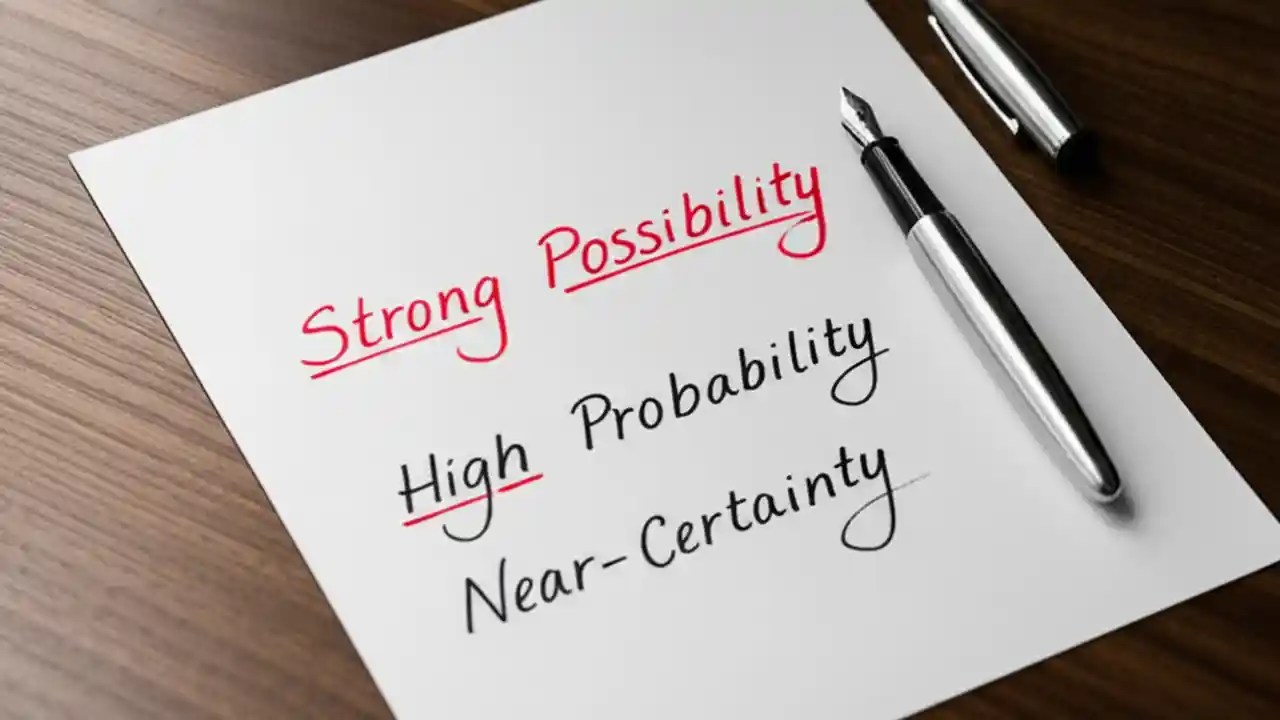 Strong Possibility
High Probability
Near-Certainty